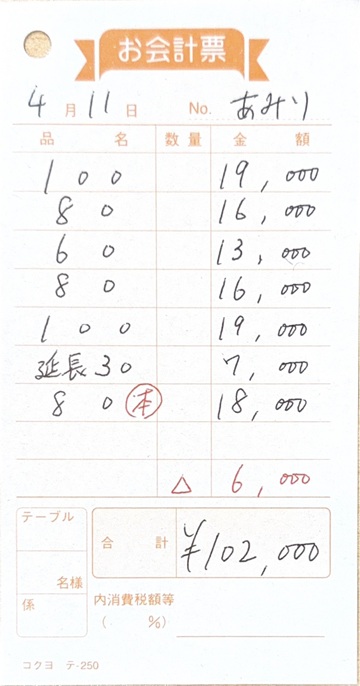 お会計票
4月11日 No. あみり
品名 数量 金額
100 19,000
80 16,000
60 13,000
80 16,000
100 19,000
延長30 7,000
80 本 18,000
△ 6,000
テーブル
名様
係
合計 ¥102,000
内消費税額等
( %)
コクヨ テ-250